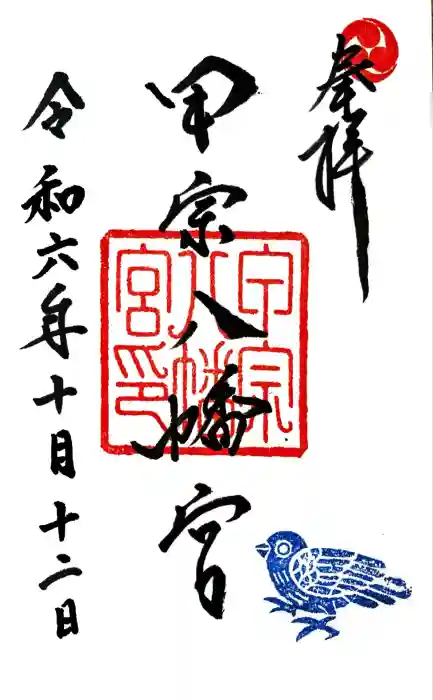 奉拝
甲宗八幡宮
甲宗
八幡
宮印
令和六年十月十二日